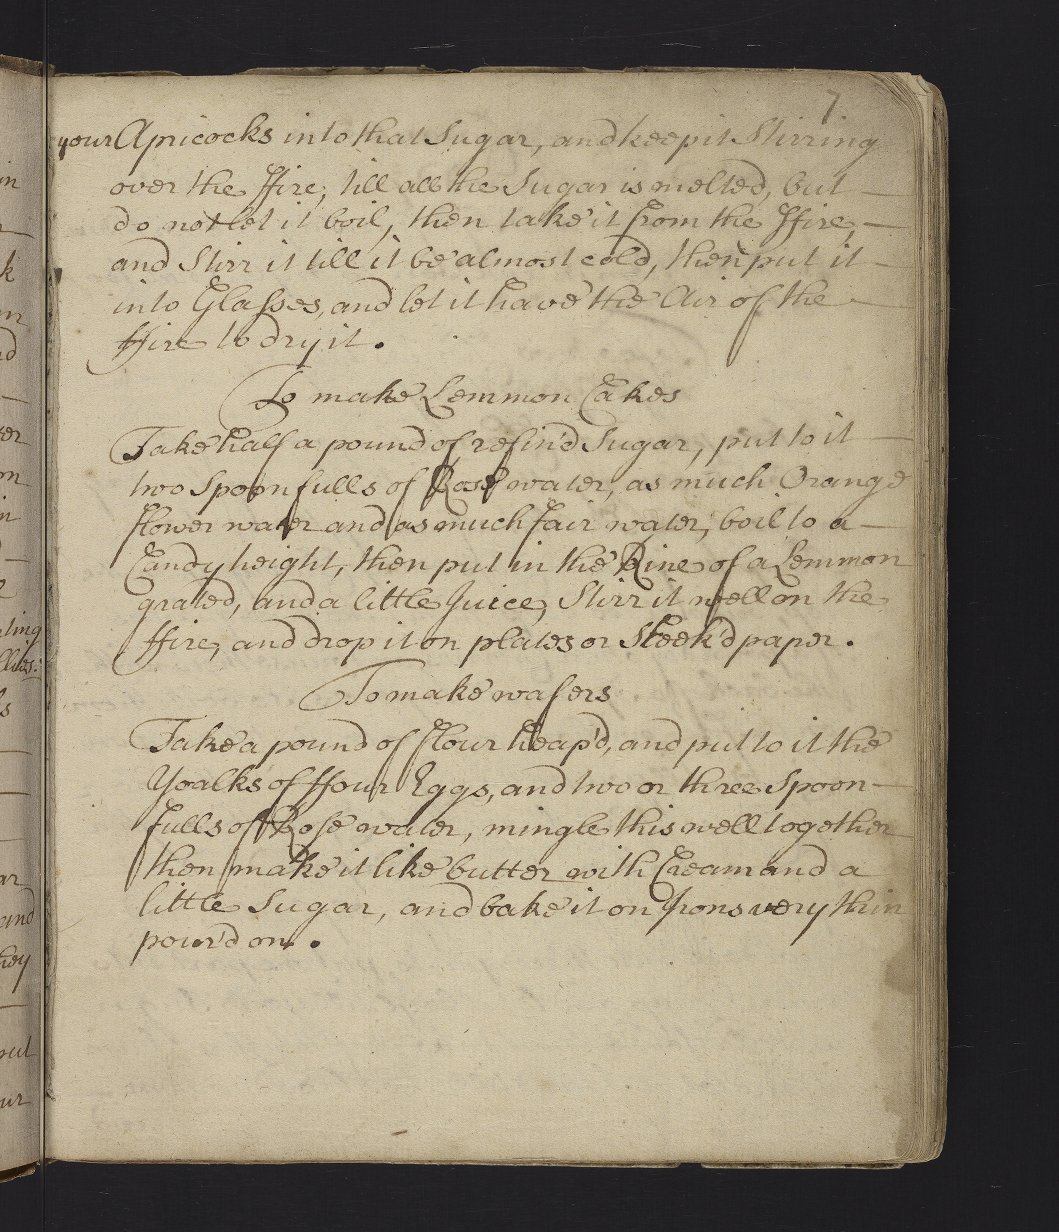 7
your Apricocks into that Sugar, and keep it Stirring
over the ffire, till all the Sugar is melted, but
do not let it boil, then take it from the ffire,
and Stirr it till it be almost cold, then put it
into Glasses, and let it have the Air of the
ffire to dry it.
To make Lemmon Cakes
Take half a pound of refin'd Sugar, put to it
two Spoonfulls of Rose water, as much Orange
flower water and as much fair water, boil to a
Candy height, then put in the Rine of a Lemmon
grated, and a little Juice, Stirr it well on the
ffire, and drop it on plates or Sleek'd paper.
To make wafers
Take a pound of flour heap'd, and put to it the
Yoalks of ffour Eggs, and two or three Spoon-
fulls of Rose water, mingle this well together
then make it like butter with Cream and a
little Sugar, and bake it on Irons very thin
pour'd on.